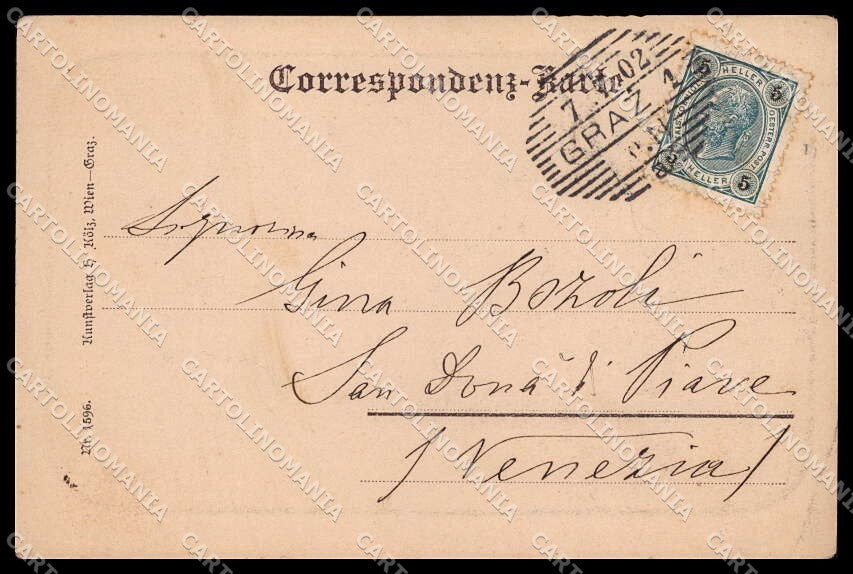 Correspondenz-Karte
7. 02
GRAZ 1
5 HELLER 5
OESTERR. POST
5 HELLER 5
Signorina
Gina Bozoli
San Donà di Piave
(Venezia)
Kunstverlag H Kölz, Wien—Graz.
Nr. 1596.
CARTOLINOMANIA